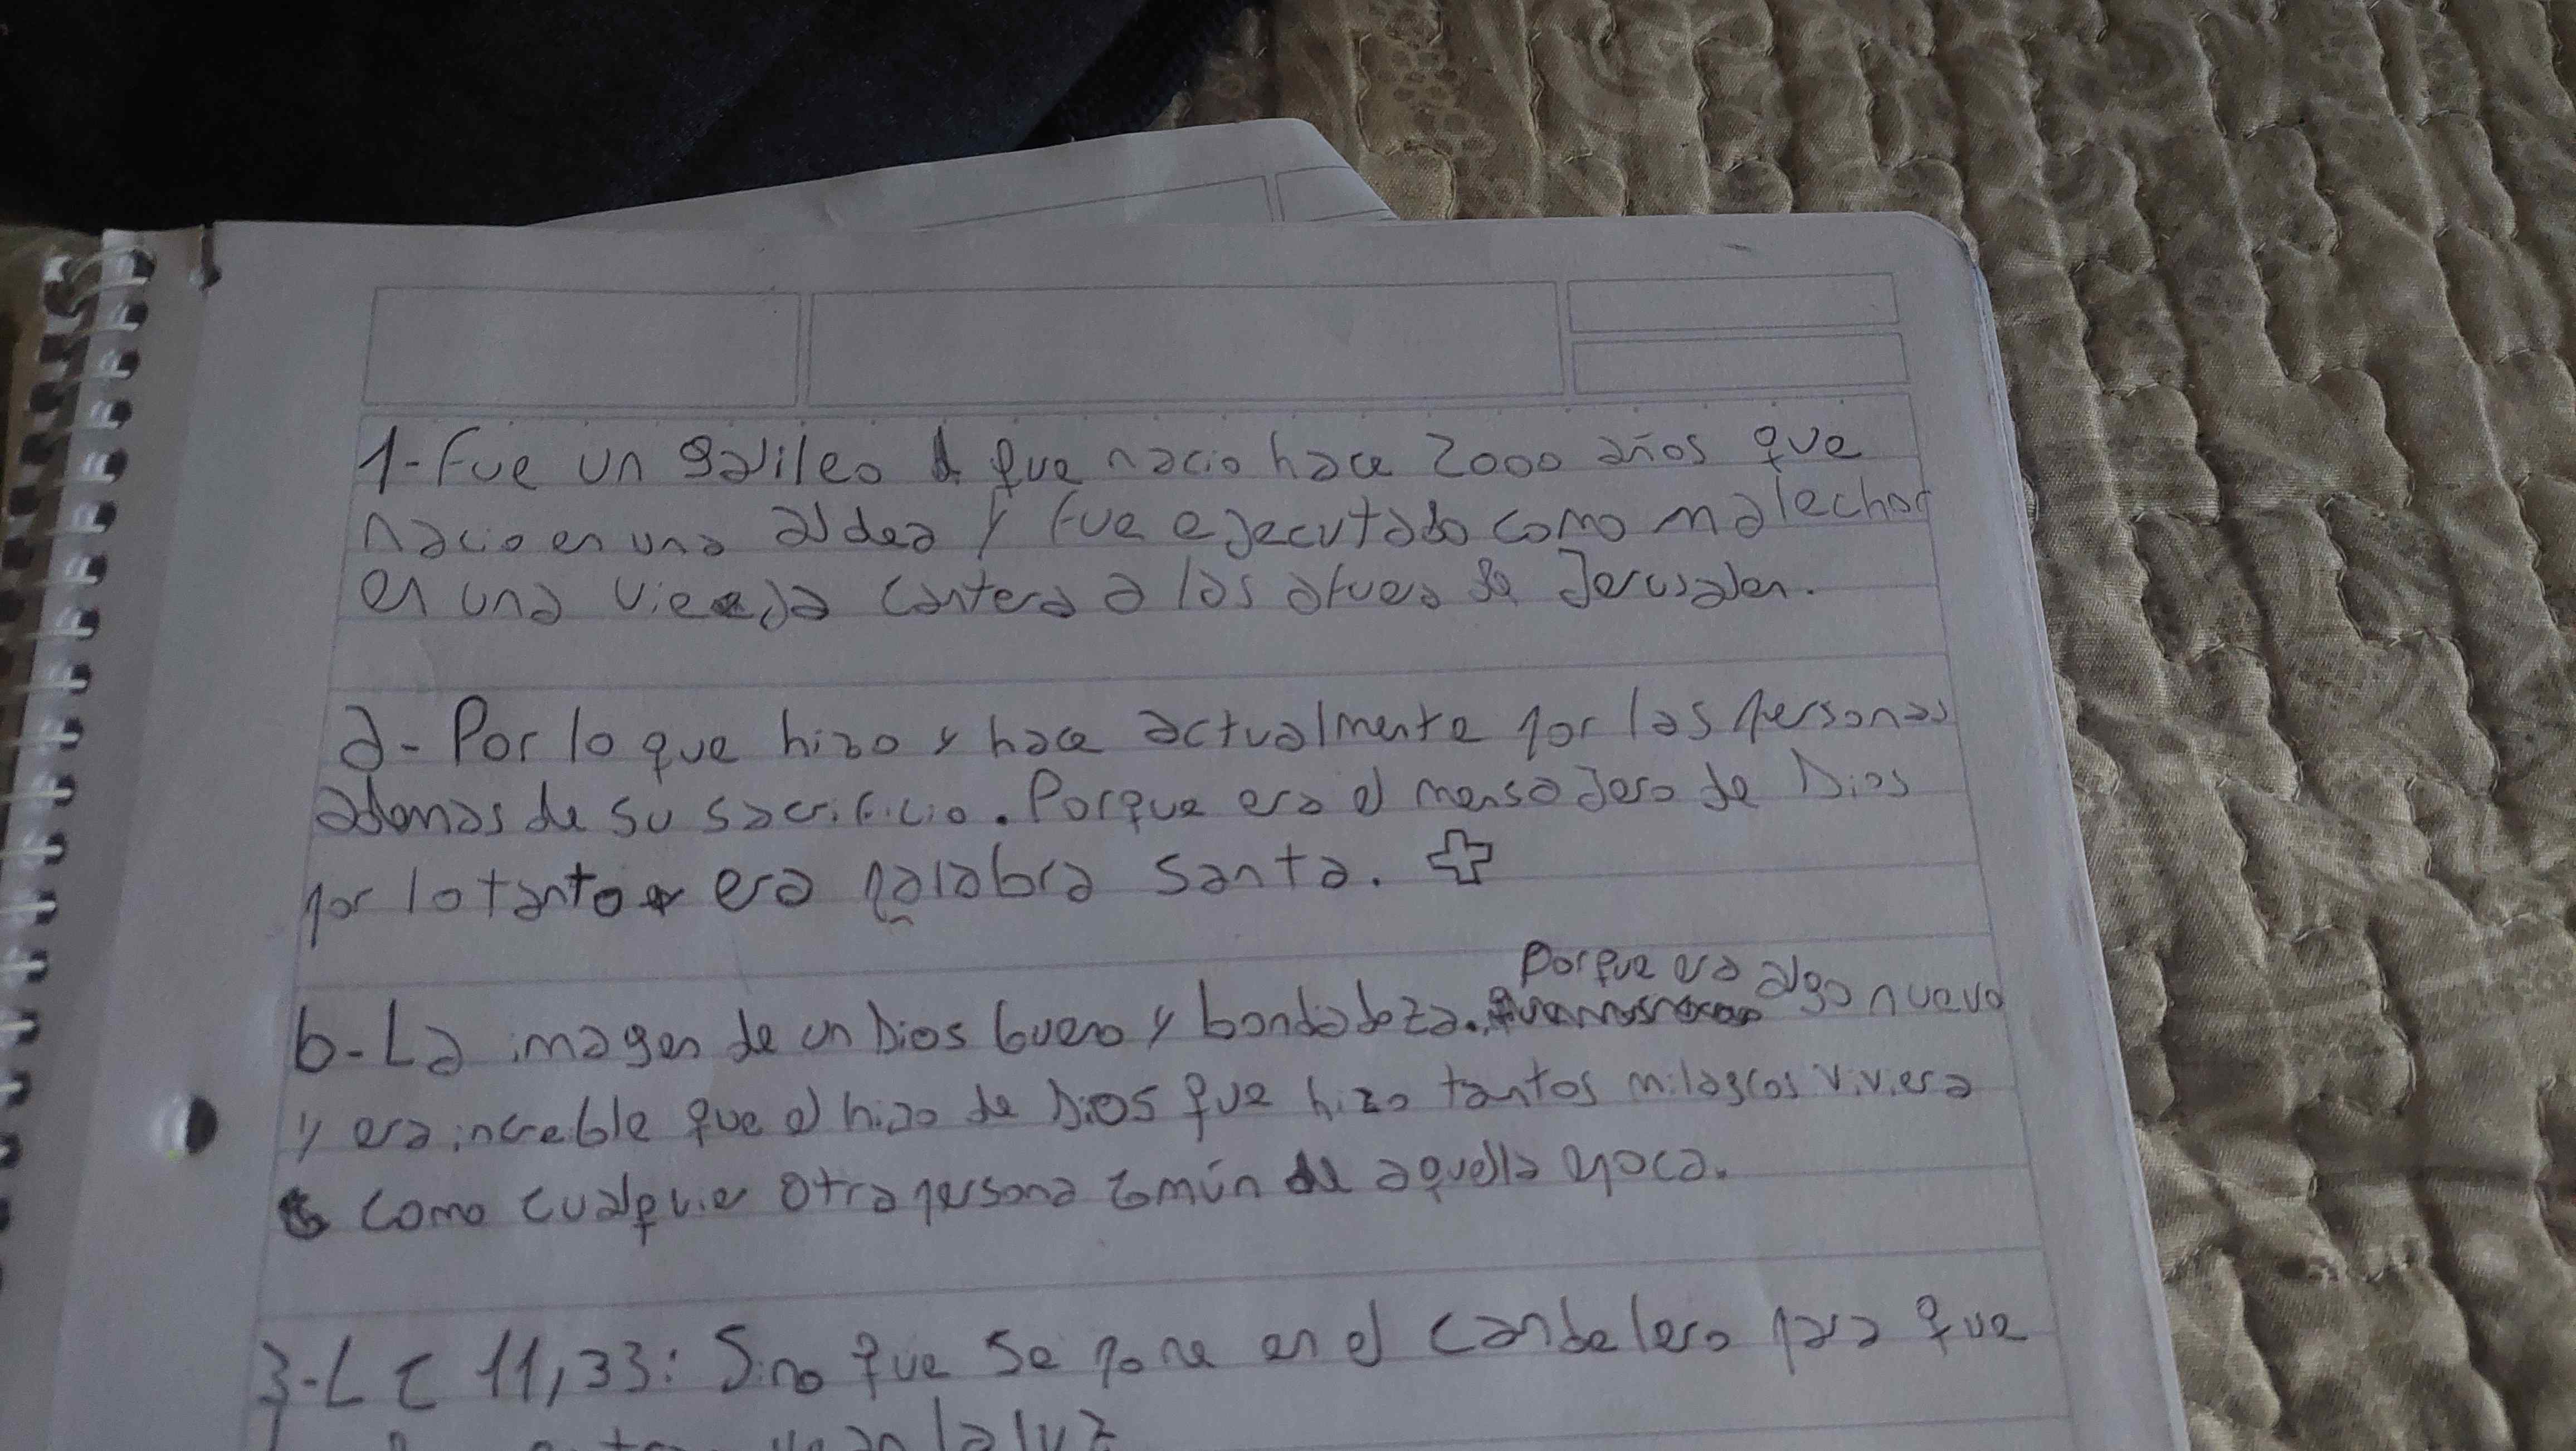 1- Fue un galileo que nacio hace 2000 años que
nacio en una aldea y fue ejecutado como malechor
en una vieja cantera a las afuera de Jerusalen.
a- Por lo que hizo y hace actualmente por las personas
ademas de su sacrificio. Porque era el mensajero de Dios
por lo tanto era palabra santa.
b- La imagen de un Dios bueno y bondadoza. Porque era algo nuevo
y era increble que el hijo de Dios que hizo tantos milagros viviera
como cualquier otra persona común de aquella epoca.
3- Lc 11,33: Sino que se pone en el candelero para que
vean la luz